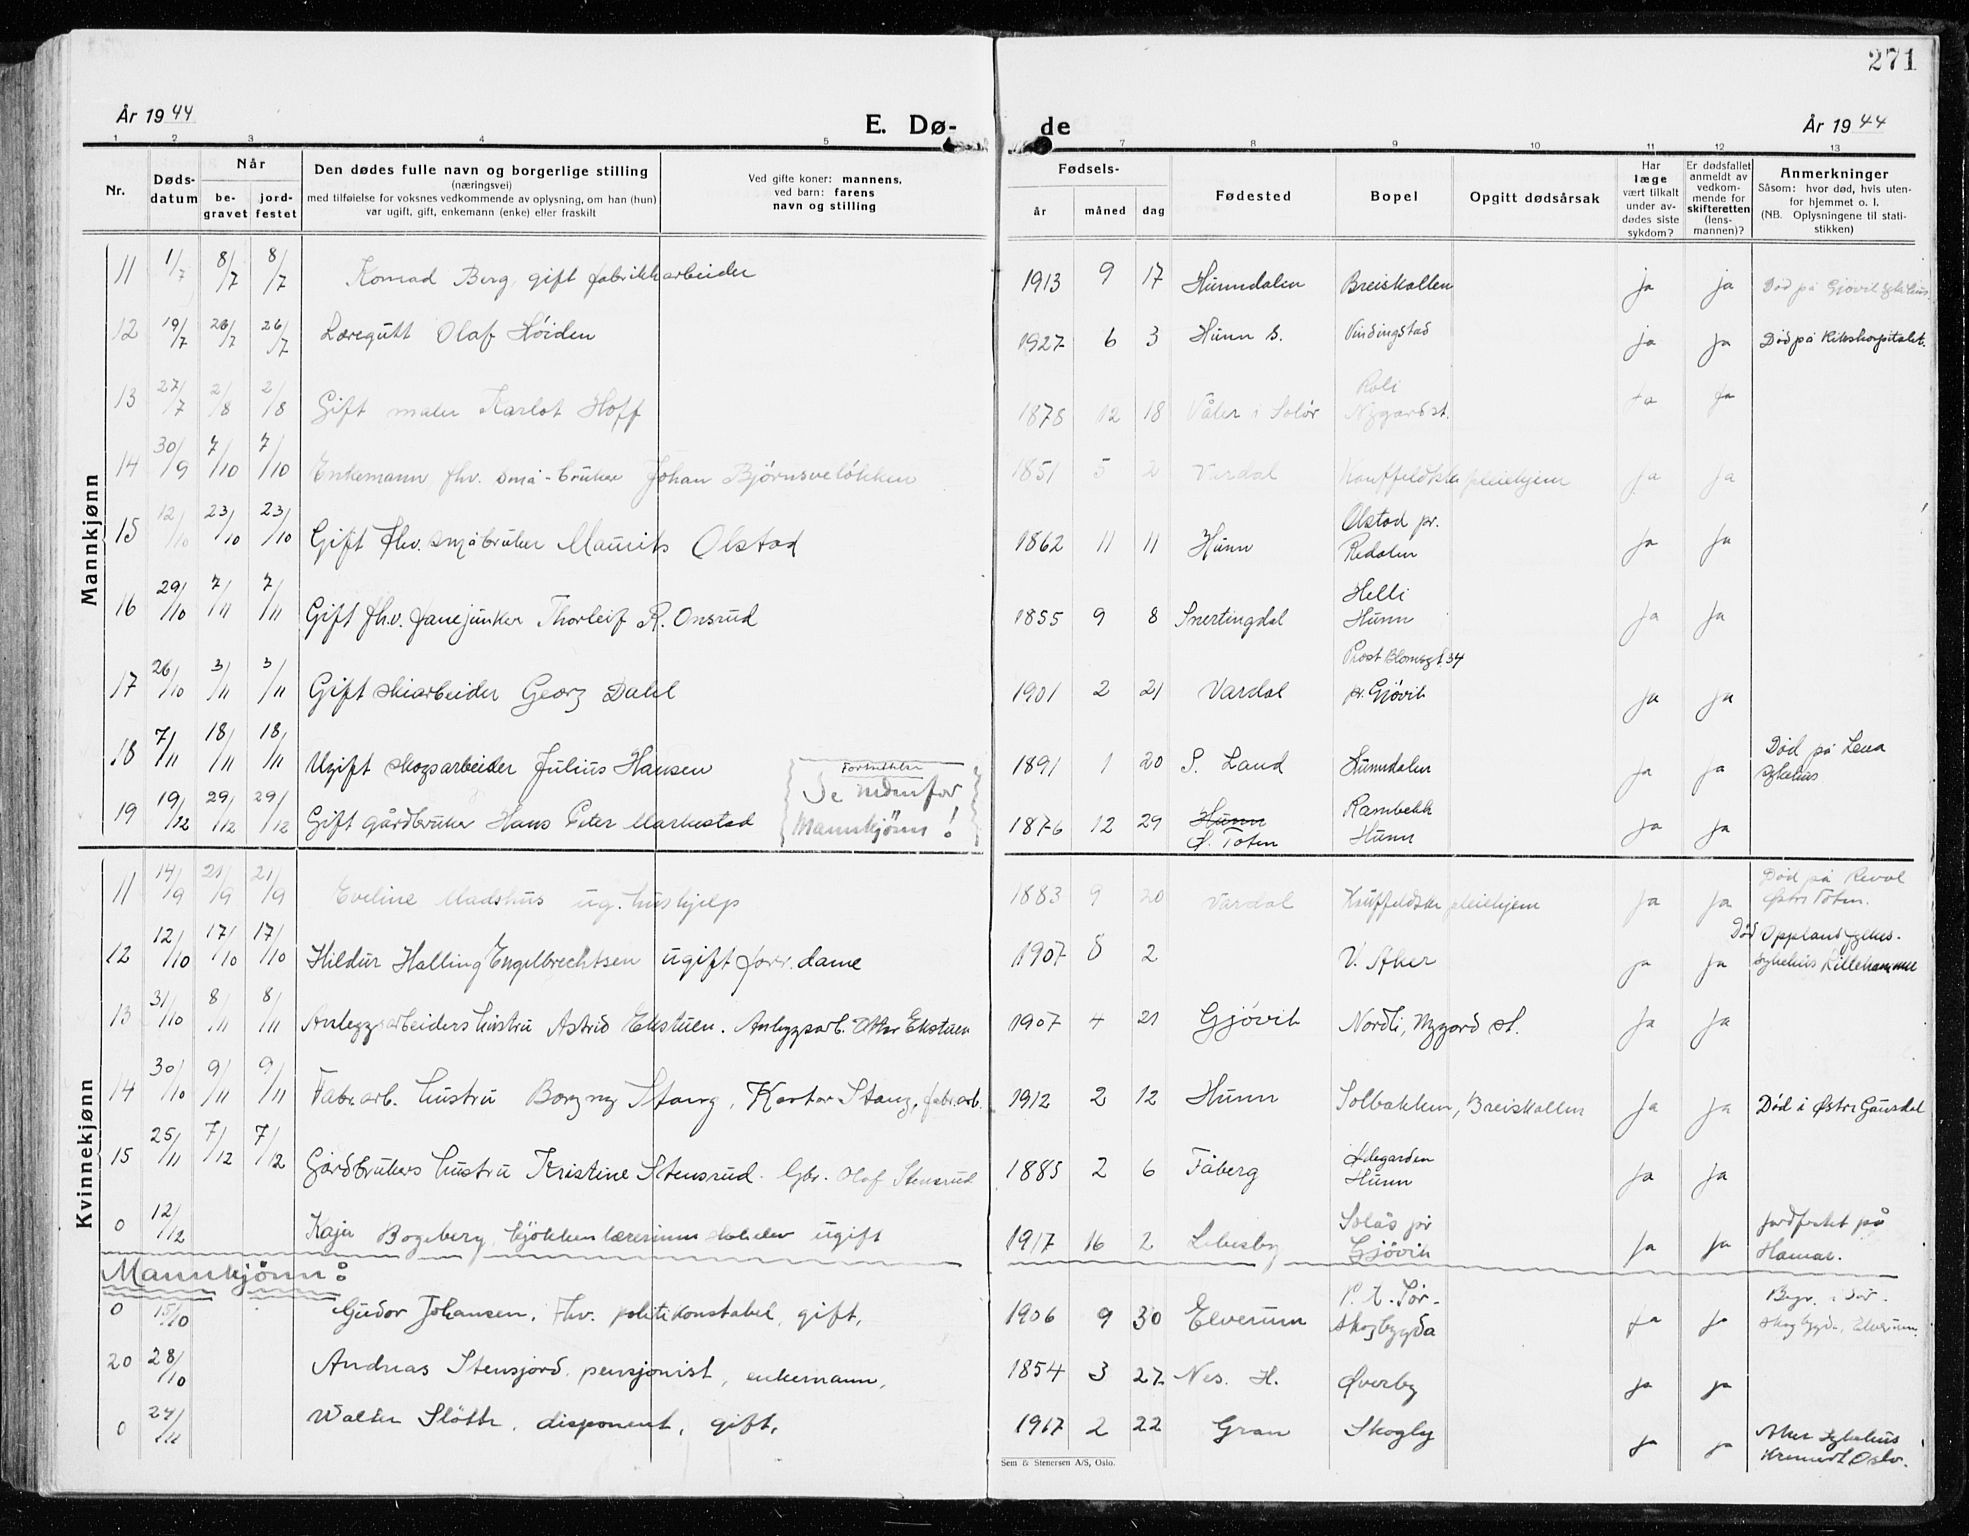 271
År 1944 E. Dø- de År 1944
1 2 3 4 5 7 8 9 10 11 12 13
Nr. Døds-datum Når be-gravet jord-festet Den dødes fulle navn og borgerlige stilling (næringsvei) med tilføielse for voksnes vedkommende av oplysning, om han (hun) var ugift, gift, enkemann (enke) eller fraskilt Ved gifte koner: mannens, ved barn: farens navn og stilling Fødsels- år måned dag Fødested Bopel Opgitt dødsårsak Har læge vært tilkalt under av-dødes siste sykdom? Er dødsfallet anmeldt av vedkom-mende for skifteretten (lens-mannen)? Anmerkninger Såsom: hvor død, hvis uten-for hjemmet o. l. (NB. Oplysningene til stati-stikken)
Mannkjønn
11 1/7 8/7 8/7 Konrad Berg, gift fabrikkarbeider 1913 9 17 Hunndalen Breiskallen ja ja Død på Gjøvik sykehus.
12 19/7 26/7 26/7 Læregutt Olaf Høiden 1927 6 3 Hunn s. Vindingstad ja ja Død på Rikshospitalet.
13 27/7 2/8 2/8 Gift maler Karlot Hoff 1878 12 18 Våler i Solør Roli Nygard st. ja ja
14 30/9 7/10 7/10 Enkemann fhv. små-bruker Johan Bjørnsveløkken 1851 5 2 Vardal Kauffeldtske pleiehjem ja ja
15 12/10 23/10 23/10 Gift fhv. småbruker Maurits Olstad 1862 11 11 Hunn Olstad pr. Redalen ja ja
16 29/10 7/11 7/11 Gift fhv. fanejunker Thorleif R. Onsrud 1855 9 8 Snertingdal Helli Hunn ja ja
17 26/10 3/11 3/11 Gift skiarbeider Georg Dahl 1901 2 21 Vardal Prost Blomsgt. 34 pr. Gjøvik ja ja
18 7/11 18/11 18/11 Ugift skogsarbeider Julius Hansen 1891 1 20 S. Land Hunndalen ja ja Død på Lena sykehus
Fortsettelse Se nedenfor Mannkjønn!
19 19/12 29/12 29/12 Gift gårdbruker Hans Peter Markestad 1876 12 29 Hunn Ø. Toten Rambekk Hunn ja ja
Kvinnekjønn
11 14/9 21/9 21/9 Eveline Madshus ug. hushjelp 1883 9 20 Vardal Kauffeldtske pleiehjem ja ja Død på Reval Østre Toten.
12 12/10 17/10 17/10 Hildur Halling Engelbrechtsen ugift forr. dame 1907 5 2 V. Aker ja ja Død Opplands fylkes-sykehus Lillehammer
13 31/10 8/11 8/11 Anleggsarbeiders hustru Astrid Ekstuen. Anleggsarb. Ottar Ekstuen 1907 4 21 Gjøvik Nordli, Nygard st. ja ja
14 30/10 9/11 9/11 Fabr.arb. hustru Borgny Stang, Kastor Stang, fabr.arb. 1912 2 12 Hunn Solbakken, Breiskallen ja ja Død i Østre Gausdal
15 25/11 7/12 7/12 Gårdbrukers hustru Kristine Stensrud. Gbr. Olaf Stensrud 1885 2 6 Fåberg Ødegarden Hunn ja ja
0 12/12 Kaja Bogeberg, kjøkkenlærerinne elev ugift 1917 16 2 Lebesby Solås pr Gjøvik ja ja Jordfestet på Hamar.
Mannkjønn:
0 15/10 Gudor Johansen, Fhv. politikonstabel, gift, 1906 9 30 Elverum P. A. Sør-Skogbygda ja ja Begr. i Sør-Skogbygda, Elverum.
20 28/10 Andreas Stensjord, pensjonist, enkemann, 1854 3 27 Nes. H. Øverby ja ja
0 24/11 Walter Slötte, disponent, gift, 1917 2 22 Gran Skogly ja ja Aker sykehus Kremert Oslo.
Sem & Stenersen A/S, Oslo.